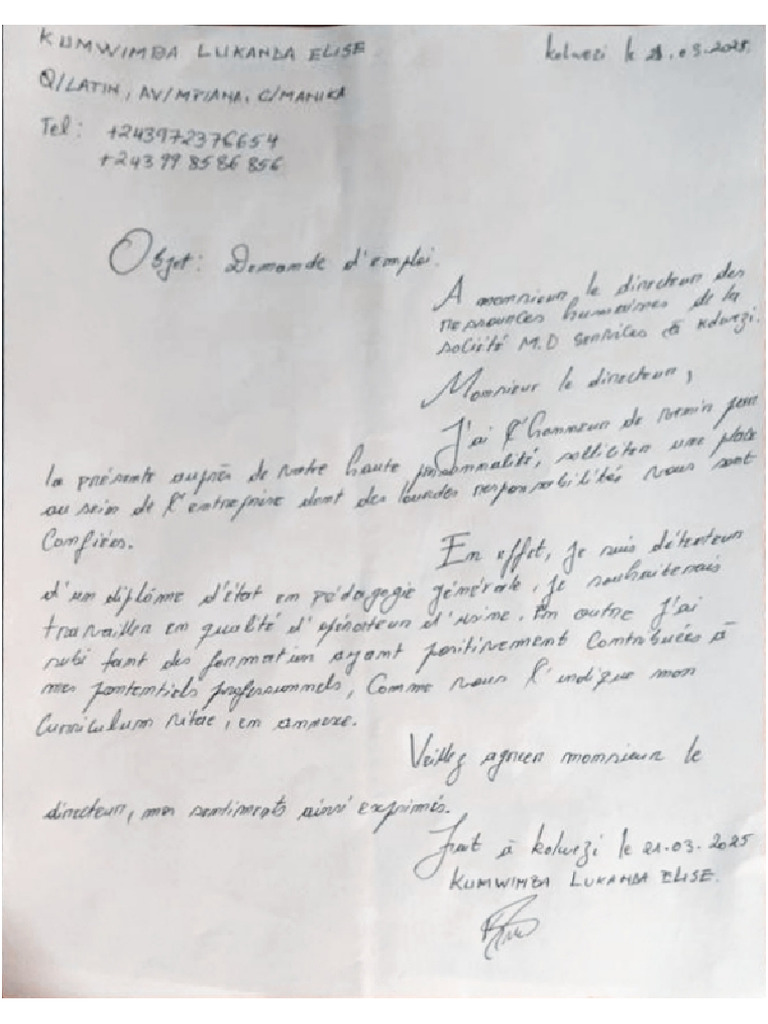 KUMWIMBA LUKANDA ELISE
Kolwezi le 21.03.2025.
Q/LATIN, AV/MPIANA, C/MANIKA
Tel: +243972376654
+243998586856
Objet: Demande d'emploi.
A monsieur le directeur des
ressources humaines de la
société M.D services à Kolwezi.
Monsieur le directeur,
J'ai l'honneur de venir par
la présente auprès de votre haute personnalité, solliciter une place
au sein de l'entreprise dont des lourdes responsabilités vous sont
Confiées.
En effet, je suis détenteur
d'un diplôme d'état en pédagogie générale, je souhaiterais
travailler en qualité d'opérateur d'usine. En outre j'ai
subi tant des formation ayant positivement contribuées à
mes potentiels professionnels, comme vous l'indique mon
Curriculum vitae, en annexe.
Veillez agréer monsieur le
directeur, mes sentiments ainsi exprimés.
Fait à kolwezi le 21.03.2025
KUMWIMBA LUKANDA ELISE.